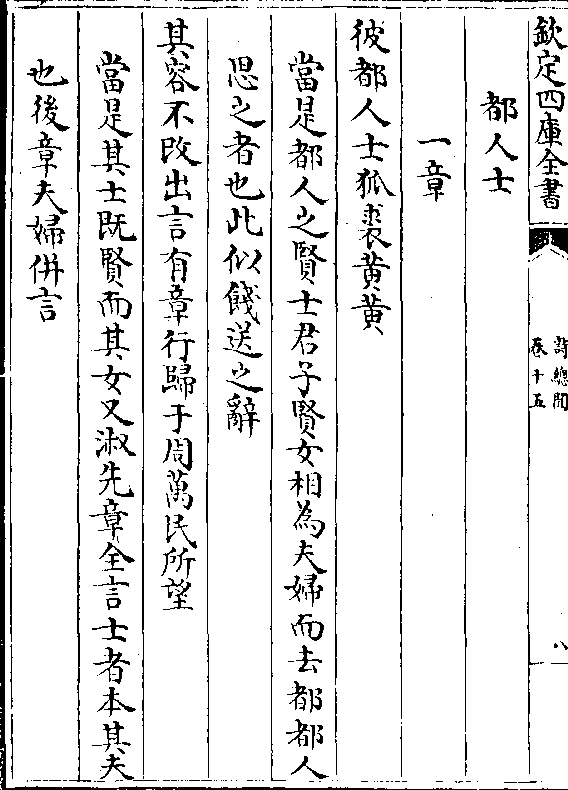 欽定四庫全書
詩總聞
卷十五
八
都人士
一章
彼都人士狐裘黃黃
當是都人之賢士君子賢女相為夫婦而去都都人
思之者也此似餞送之辭
其容不改出言有章行歸于周萬民所望
當是其士既賢而其女又淑先章全言士者本其夫
也後章夫婦併言